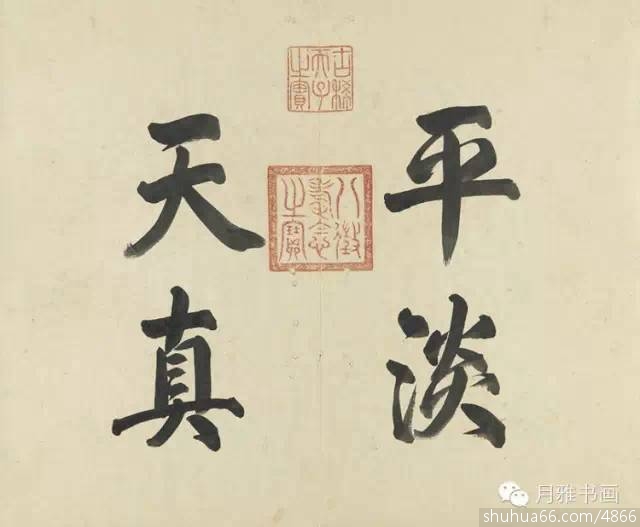 平淡
天真
古稀天子之寶
八徵耄念之寶
月雅书画
shuhua66.com/4866